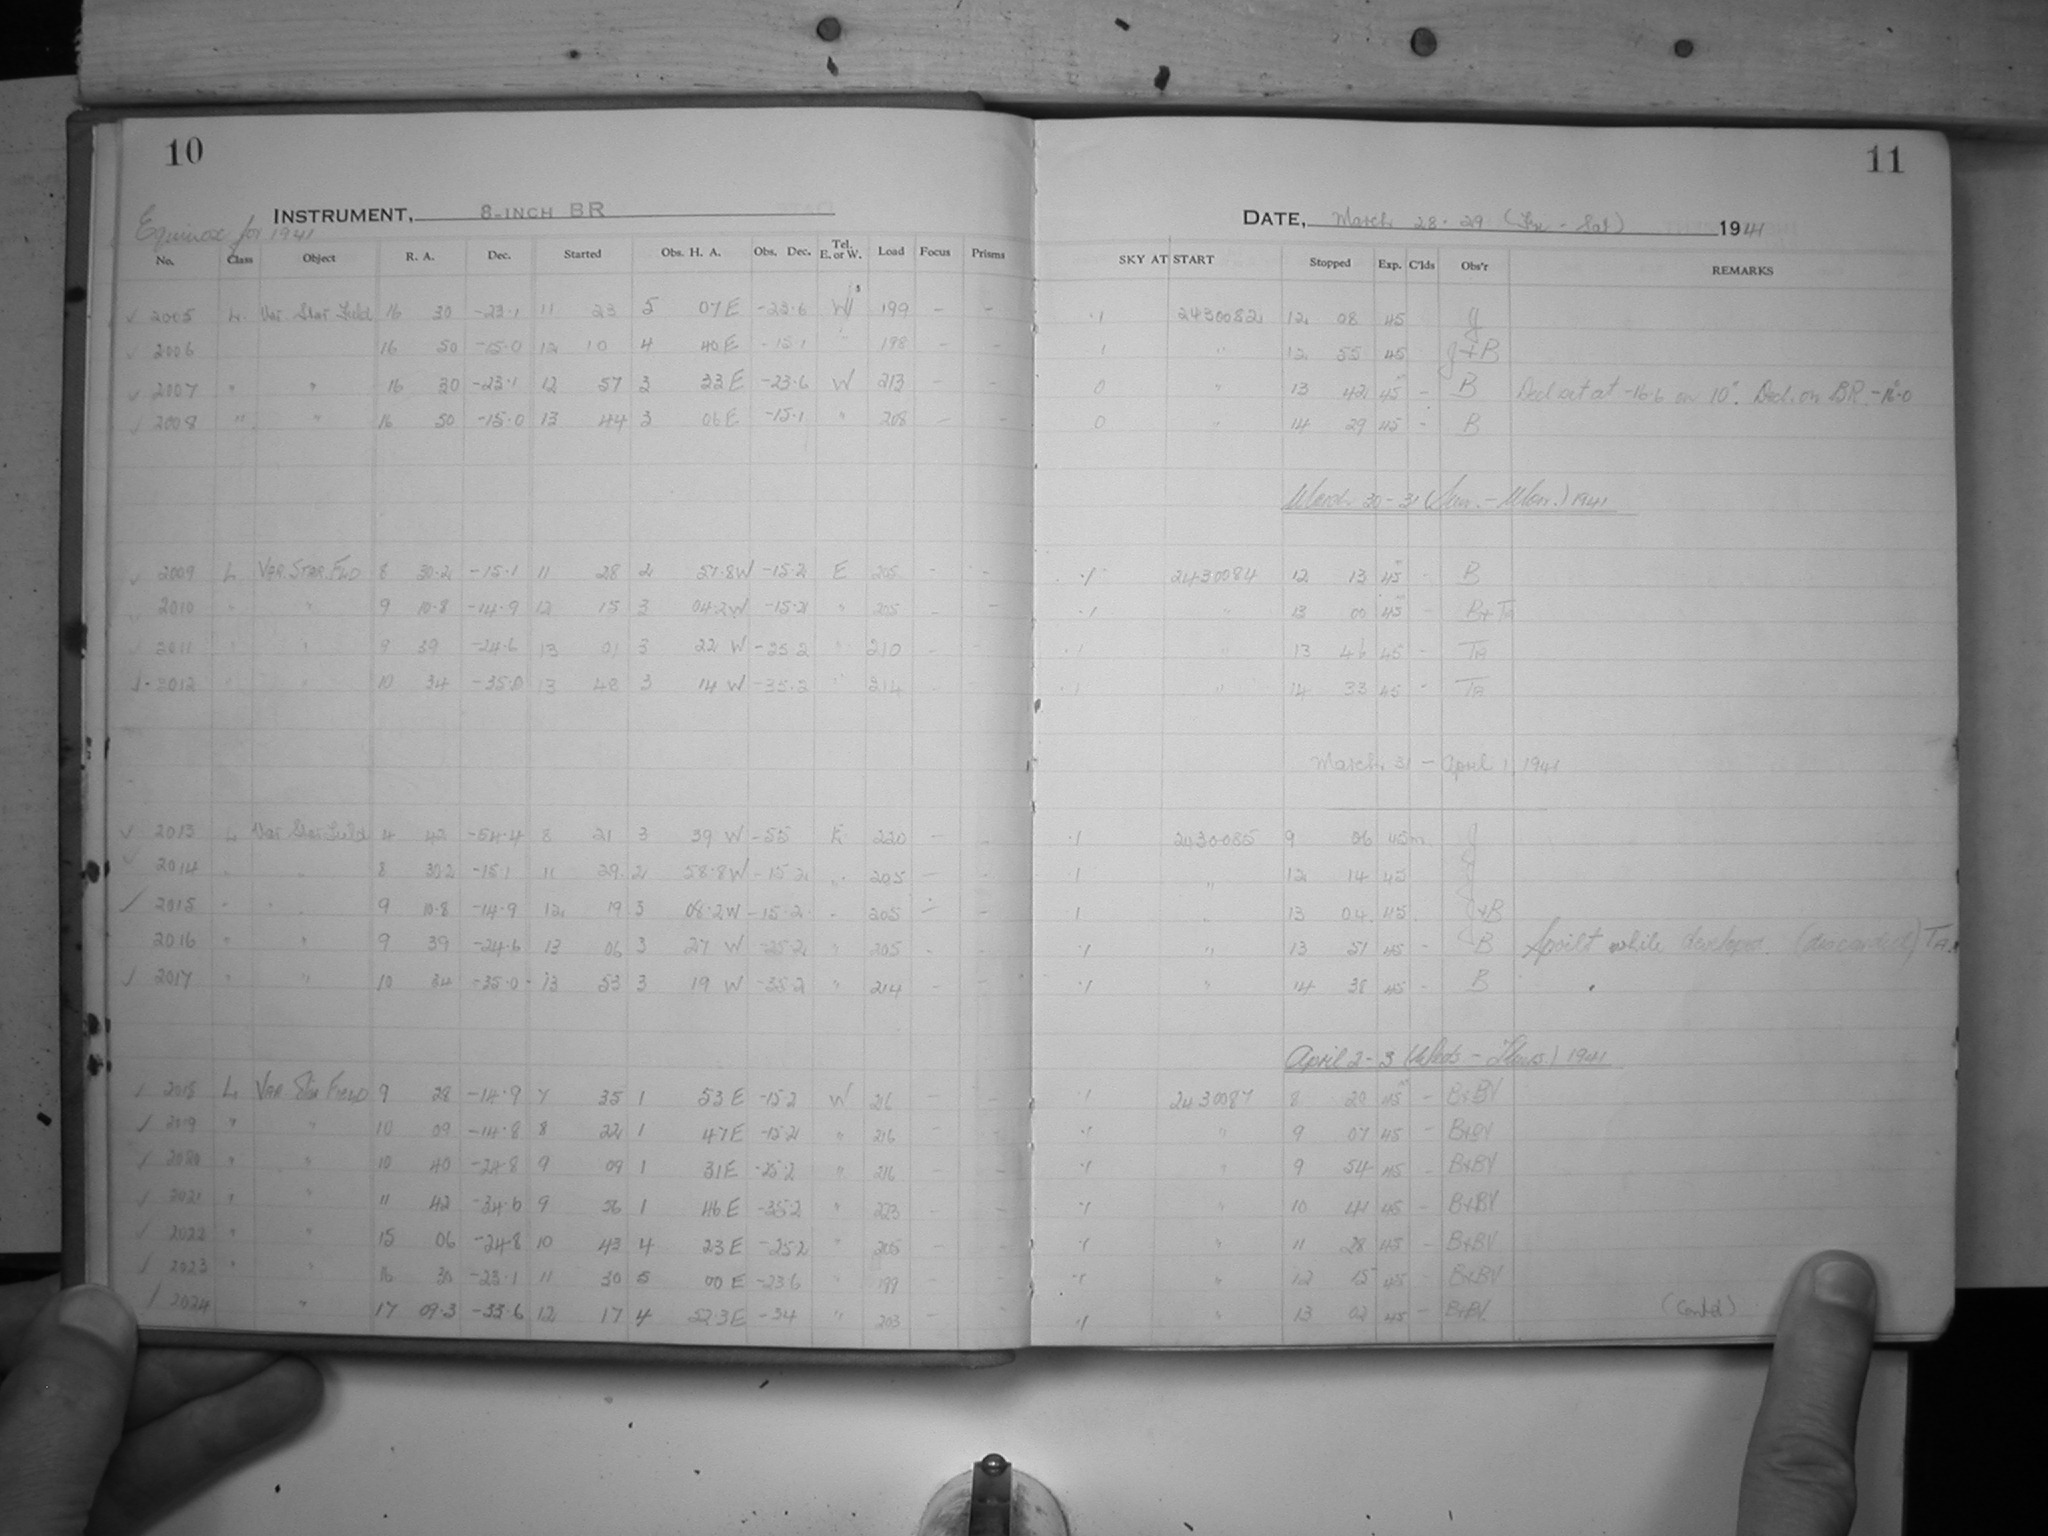 10
INSTRUMENT, 8-INCH BR
Equinox for 1941
No. Class Object R. A. Dec. Started Obs. H. A. Obs. Dec. Tel. E. or W. Load Focus Prisms
2005 L. Var. Star Field 16 30 -23.1 11 23 5 07 E -23.6 W 199 - -
2006 16 50 -15.0 12 10 4 40 E -15.1 " 198 - -
2007 " " 16 30 -23.1 12 57 3 33 E -23.6 W 213 - -
2008 " " 16 50 -15.0 13 44 3 06 E -15.1 " 208 - -
2009 L. VAR. STAR. FLD 8 30.2 -15.1 11 28 2 57.8 W -15.2 E 205 - -
2010 " " 9 10.8 -14.9 12 15 3 04.2 W -15.2 " 205 - -
2011 " " 9 39 -24.6 13 01 3 22 W -25.2 " 210 - -
2012 " " 10 34 -35.0 13 48 3 14 W -35.2 " 214 - -
2013 L Var Star Field 4 42 -54.4 8 21 3 39 W -55 E 220 - -
2014 " " 8 30.2 -15.1 11 29 2 58.8 W -15.2 " 205 - -
2015 " " 9 10.8 -14.9 12 19 3 08.2 W -15.2 " 205 - -
2016 " " 9 39 -24.6 13 06 3 27 W -25.2 " 205 - -
2017 " " 10 34 -35.0 13 53 3 19 W -35.2 " 214 - -
2018 L VAR STAR FIELD 9 28 -14.9 7 35 1 53 E -15.2 W 216 - -
2019 " " 10 09 -14.8 8 22 1 47 E -15.2 " 216 - -
2020 " " 10 40 -24.8 9 09 1 31 E -25.2 " 216 - -
2021 " " 11 42 -34.6 9 56 1 46 E -35.2 " 223 - -
2022 " " 15 06 -24.8 10 43 4 23 E -25.2 " 205 - -
2023 " " 16 30 -23.1 11 30 5 00 E -23.6 " 199 - -
2024 " 17 09.3 -33.6 12 17 4 52.3 E -34 " 203 - -
11
DATE, March 28-29 (Fri - Sat) 1941
SKY AT START Stopped Exp. C'lds Obs'r REMARKS
.1 2430082 12 08 45 J
1 " 12 55 45 J+B
0 " 13 42 45 - B Decl set at -16.6 on 10". Decl. on BR
0 " 14 29 45 - B
March 30-31 (Sun. - Mon.) 1941
.1 2430084 12 13 45 - B
.1 " 13 00 45 - B+TA
.1 " 13 46 45 - TA
.1 " 14 33 45 - TA
March 31 - April 1, 1941
.1 2430085 9 06 45m. J
.1 " 12 14 45 J
.1 " 13 04 45 J+B
.1 " 13 51 45 - B Spoilt while developed. (discarded) TA.
.1 " 14 38 45 - B
April 2-3 (Weds - Thurs.) 1941
.1 2430087 8 20 45 - B+BV
.1 " 9 07 45 - B+BV
.1 " 9 54 45 - B+BV
.1 " 10 41 45 - B+BV
.1 " 11 28 45 - B+BV
.1 " 12 15 45 - B+BV
.1 " 13 02 45 - B+BV.
(Contd)